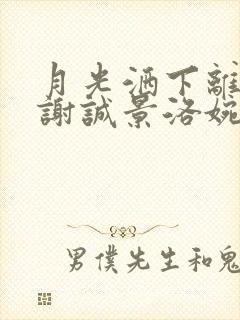 月光洒下離
謝誠景洛婉
男僕先生和鬼